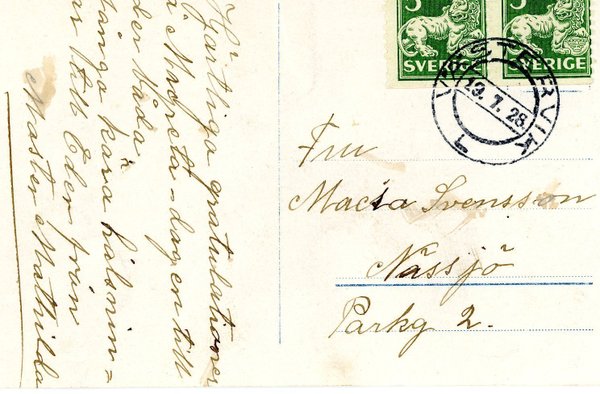 Hjärtliga gratulationer
å Margreta-dagen till
der båda
många kära hälsnin=
ar till Eder från
Moster Mathilda
5
5
SVERIGE
SVERIGE
VÄSTERVIK
19.7.28
1
Fru
Maria Svensson
Nässjö
Parkg 2.